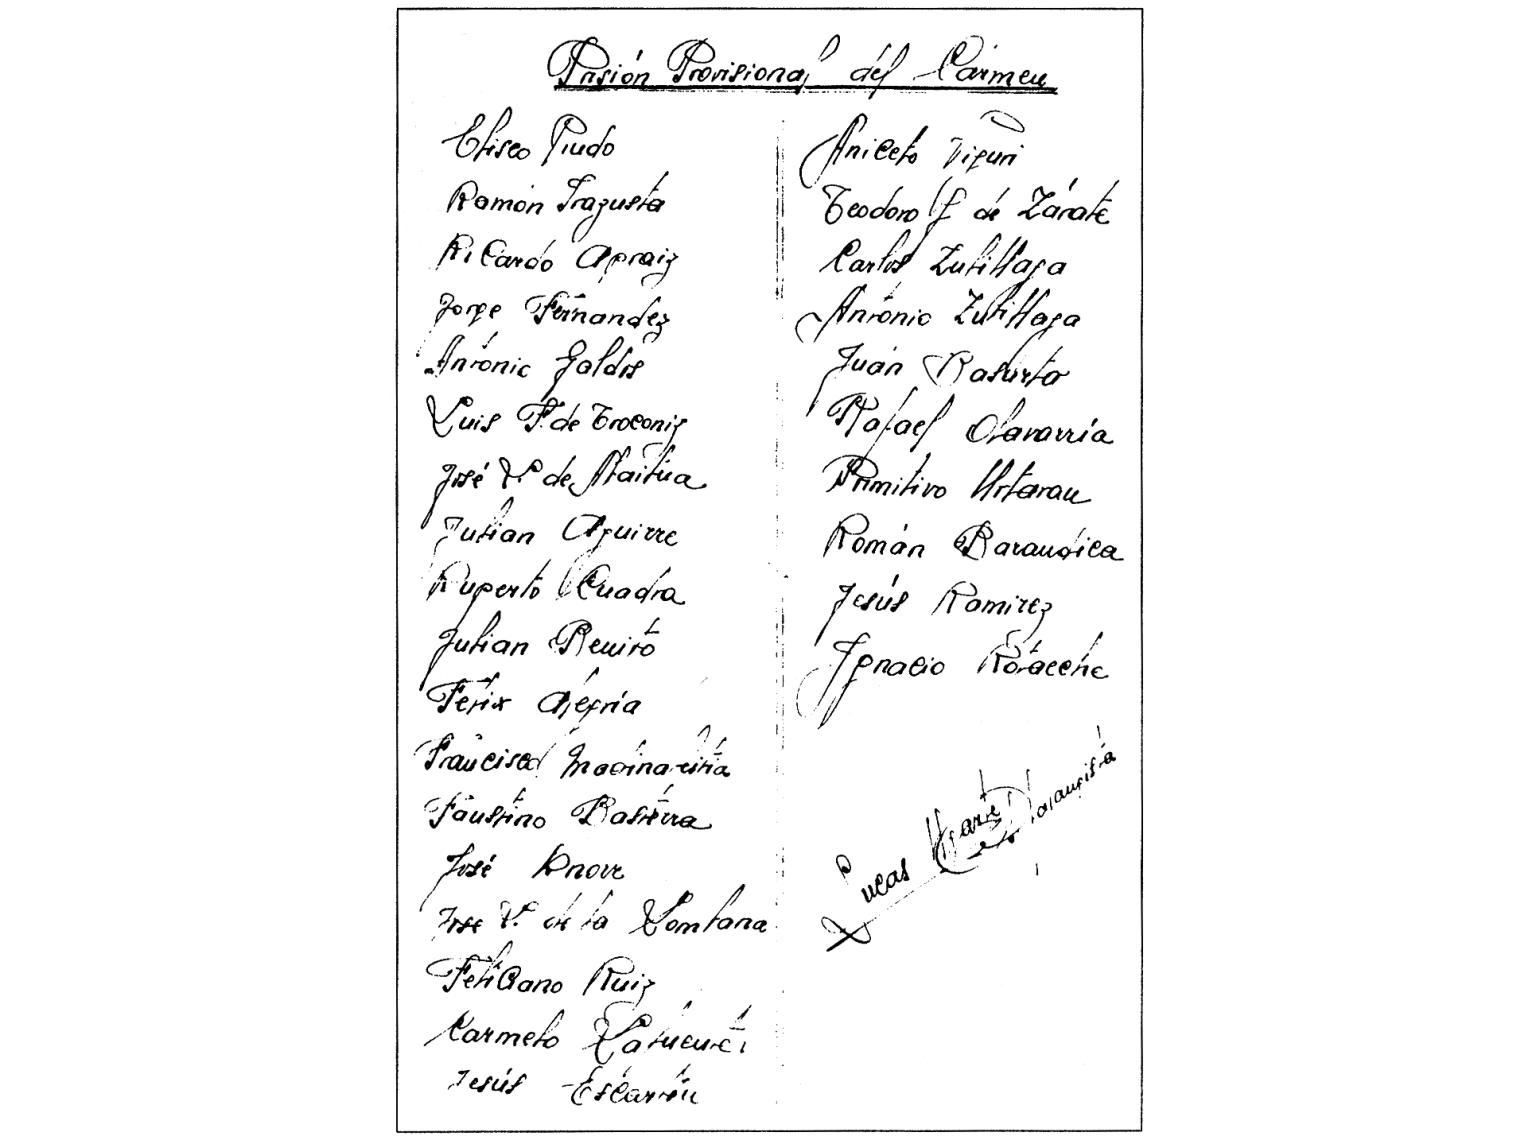 Prisión Provisional del Carmen
Eliseo Pindo
Ramón Iragusta
Ricardo Apraiz
Jorge Fernandez
Antonio Galdos
Luis F. de Troconiz
José V. de Maitua
Julian Aguirre
Ruperto Cuadra
Julian Benito
Felix Alegria
Francisco
Faustino Basterra
José
Jose V. de la Lombana
Feliciano Ruiz
Carmelo
Jesús
Aniceto Viguri
Teodoro G. de Zárate
Carlos Zubillaga
Antonio Zubillaga
Juan Basurto
Rafael Olavarría
Primitivo Urtaran
Román Barandica
Jesús Ramirez
Ignacio Rotaeche
Lucas Ugarte